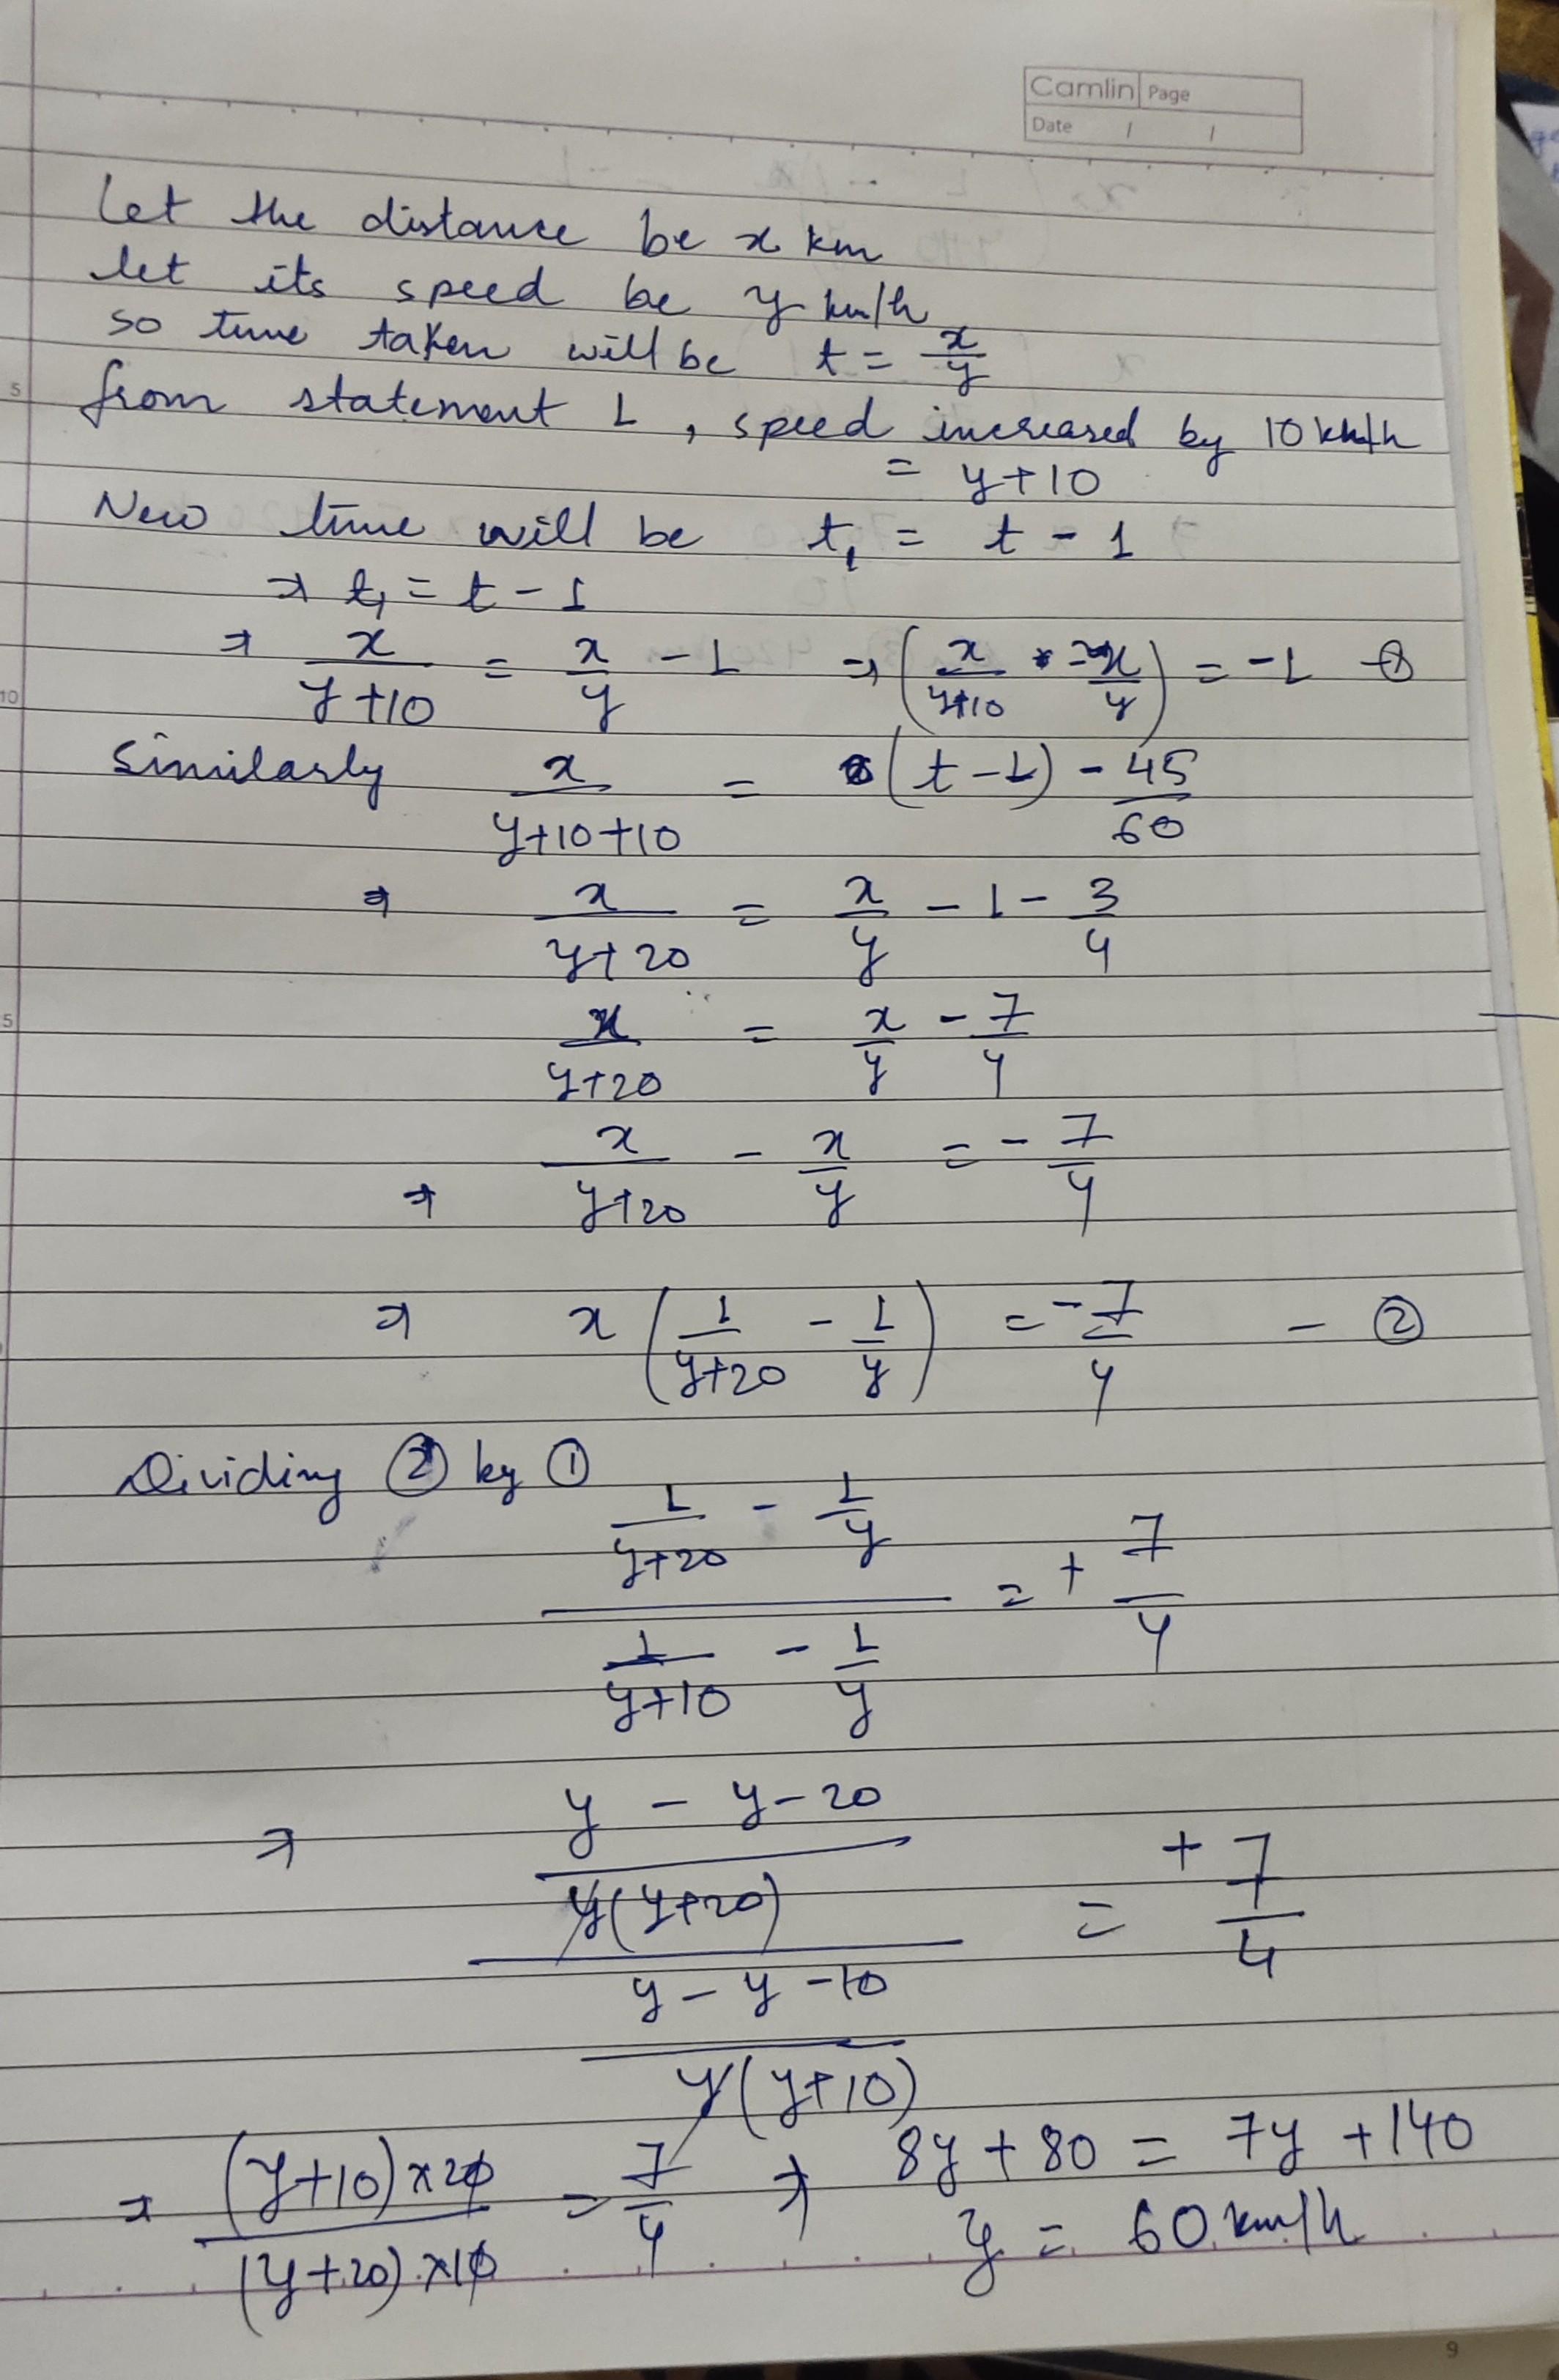 Camlin Page
Date / /
Let the distance be x km
let its speed be y km/h
so time taken will be t = x/y
5
from statement 1, speed increased by 10 km/h
= y+10
New time will be t₁ = t - 1
⇒ t₁ = t - 1
⇒ x/(y+10) = x/y - 1 ⇒ (x/(y+10) - x/y) = -1 - ①
10
Similarly x/(y+10+10) = (t-1) - 45/60
⇒ x/(y+20) = x/y - 1 - 3/4
x/(y+20) = x/y - 7/4
⇒ x/(y+20) - x/y = - 7/4
⇒ x (1/(y+20) - 1/y) = -7/4 - ②
Dividing ② by ①
(1/(y+20) - 1/y) / (1/(y+10) - 1/y) = + 7/4
⇒ ((y - y - 20)/(y(y+20))) / ((y - y - 10)/(y(y+10))) = + 7/4
⇒ ((y+10)×20)/((y+20)×10) = 7/4 ⇒ 8y + 80 = 7y + 140
y = 60 km/h
9